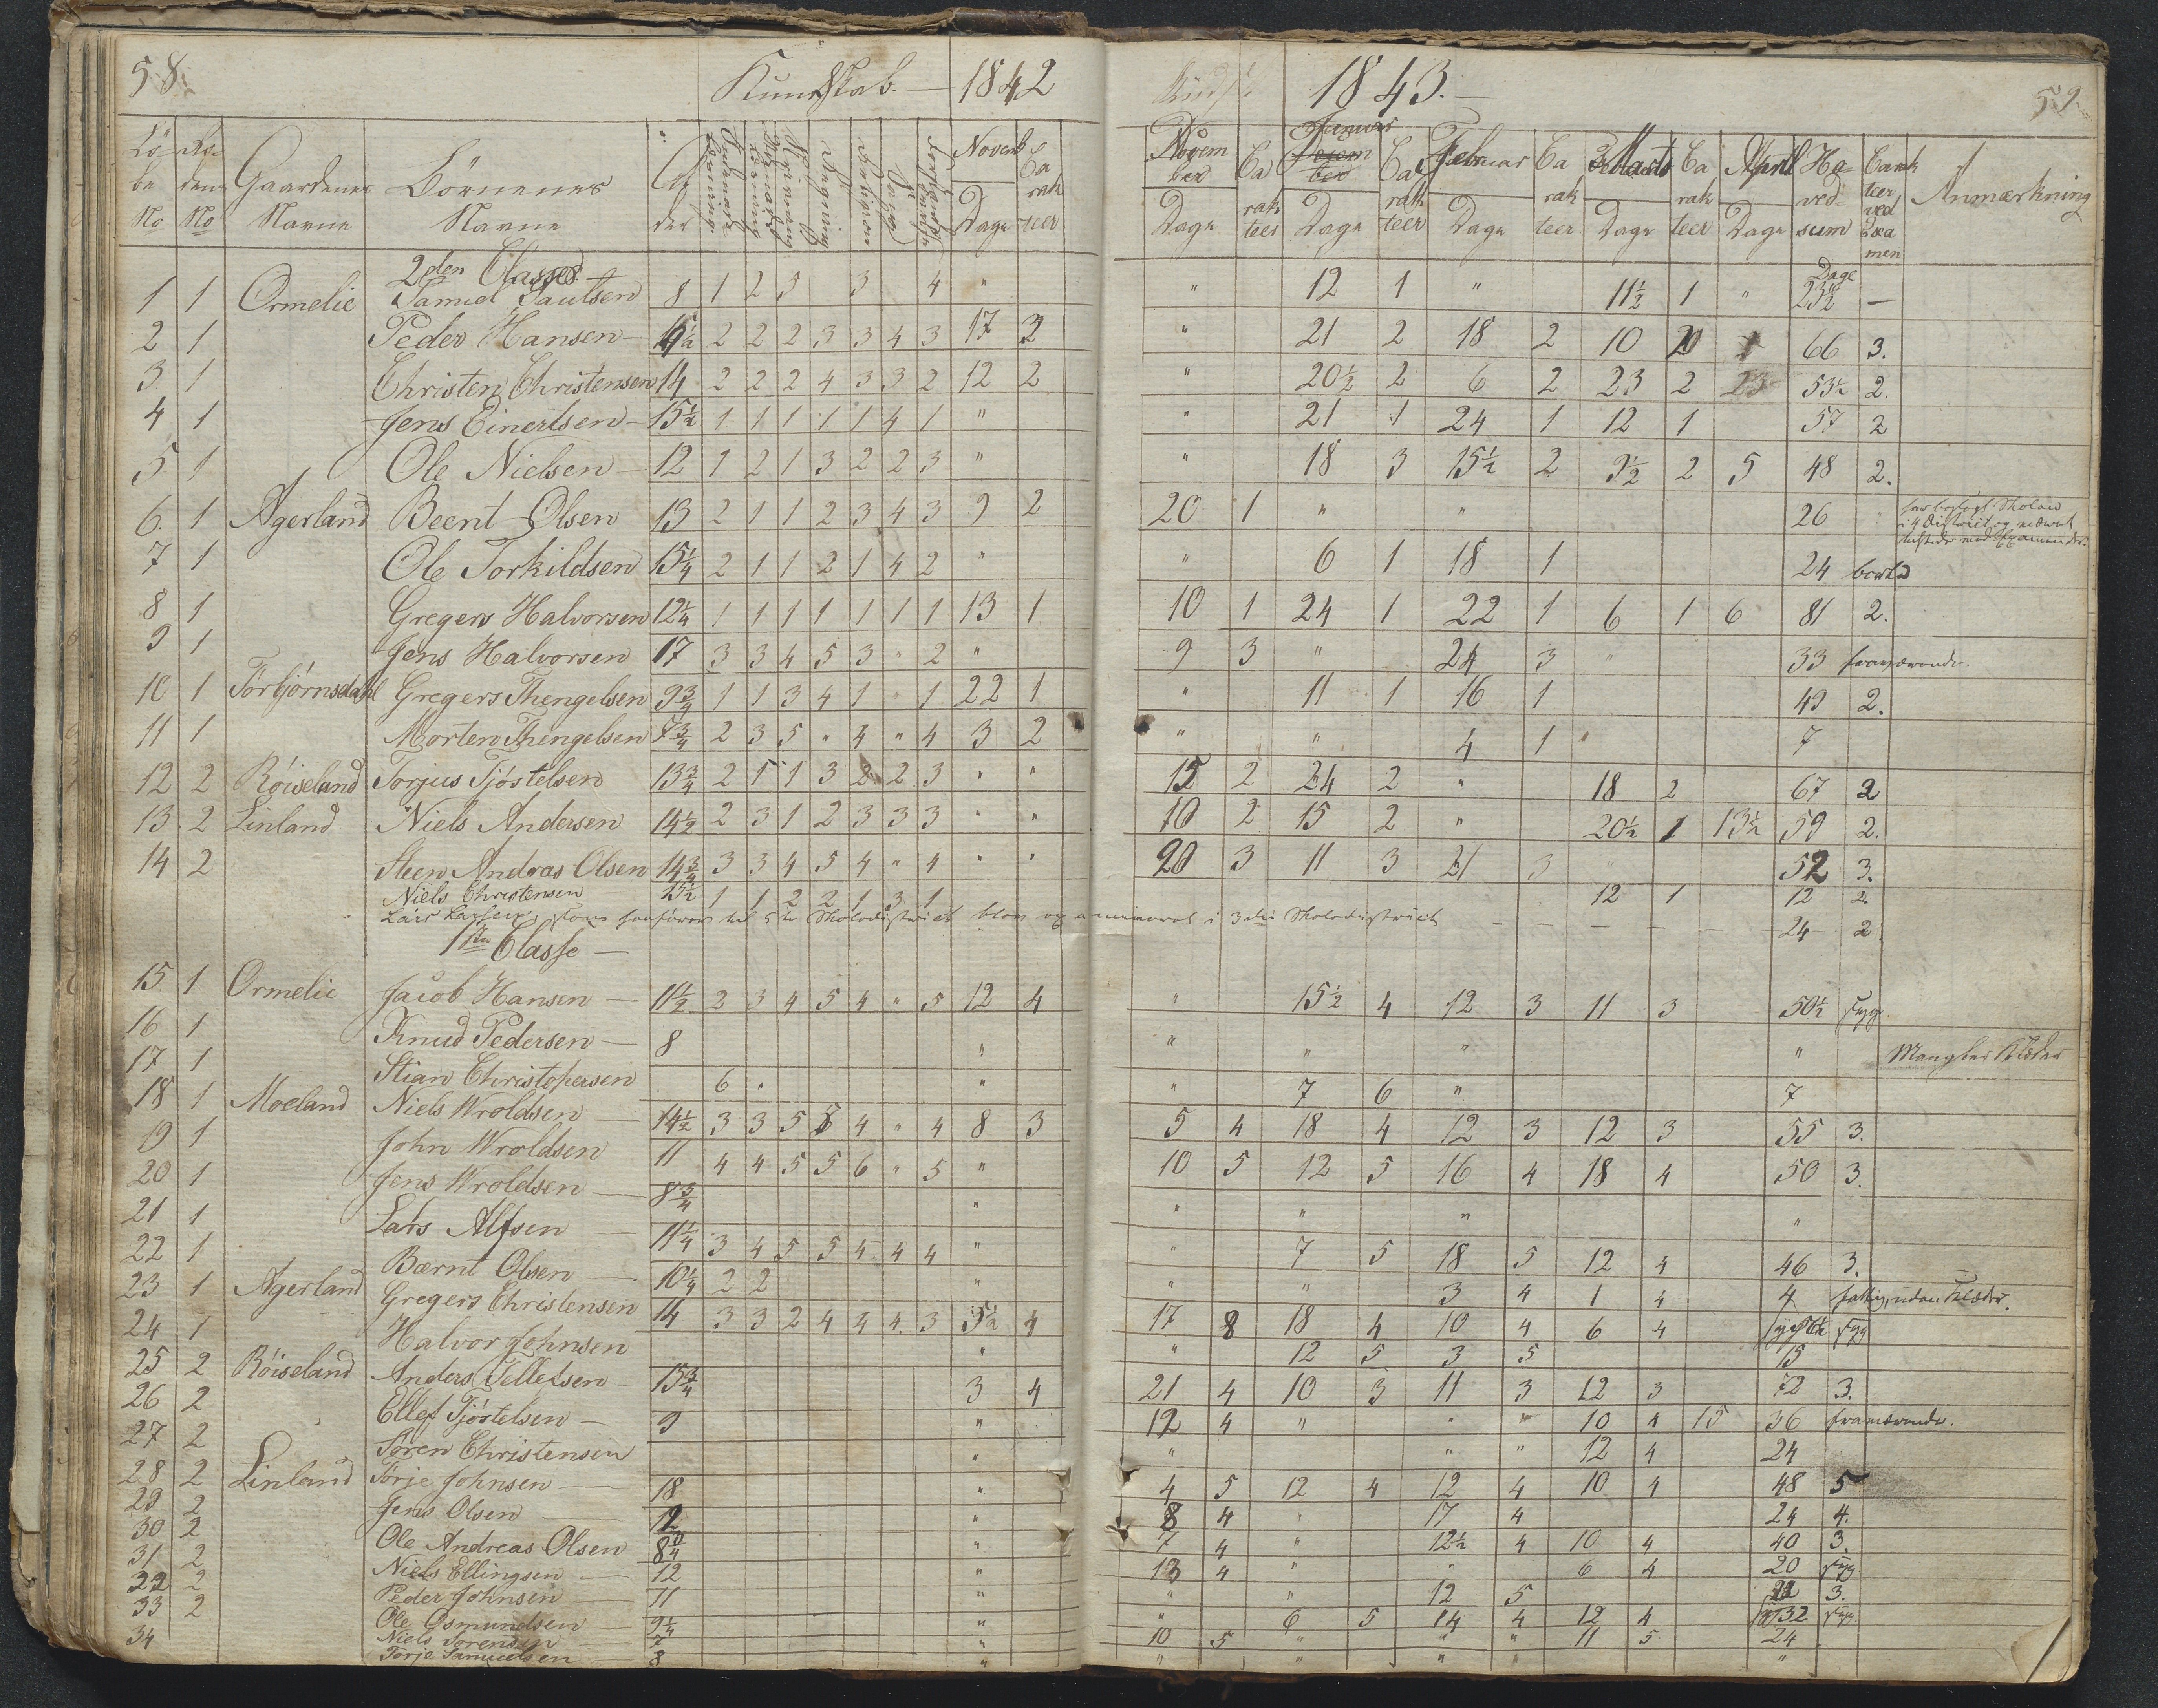 58.
Kundskab. — 1842
Lö-
be
No
Gaardenes
Navne
Börnenes
Navne
Al
der
Novemb
Dage
Ca
rak
teer
2den Classe
1 1 Ormelie Samuel Paulsen 8 1 2 5 3 4 "
2 1 Peder Hansen — 2 2 2 3 3 4 3 17 3
3 1 Christen Christensen 14 2 2 2 4 3 3 2 12 2
4 1 Jens Einertsen — 15½ 1 1 1 1 1 4 1 "
5 1 Ole Nielsen — 12 1 2 1 3 2 2 3 "
6. 1 Agerland Beent Olsen 13 2 1 1 2 3 4 3 9 2
7 1 Ole Torkildsen 15¼ 2 1 1 2 1 4 2 "
8 1 Gregers Halvorsen 12¼ 1 1 1 1 1 1 1 13 1
9 1 Jens Halvorsen 17 3 3 4 5 3 " 2 "
10 1 Törbjörnsdahl Gregers Thengelsen 9¾ 1 1 3 4 1 " 1 22 1
11 1 Morten Thengelsen 7¾ 2 3 5 " 4 " 4 3 2
12 2 Röiseland Torjus Tjöstelsen 13¾ 2 1 1 3 2 2 3 " "
13 2 Linland Niels Andersen 14½ 2 3 1 2 3 3 3 " "
14 2 Steen Andreas Olsen 14¾ 3 3 4 5 4 " 4 " "
Niels Christensen 15½ 1 1 2 2 1 3 1
1ste Classe —
15 1 Ormelie Jacob Hansen — 11½ 2 3 4 5 4 " 5 12 4
16 1 Knud Pedersen — 8 "
17 1 Stian Christophersen 6 " "
18 1 Moeland Niels Wroldsen 14½ 3 3 5 5 4 " 4 8 3
19 1 John Wroldsen 11 4 4 5 5 6 " 5 "
20 1 Jens Wroldsen — 8¾ "
21 1 Lars Alfsen — 11¼ 3 4 5 5 4 4 4 "
22 1 Bærnt Olsen — 10¼ 2 2 "
23 1 Agerland Gregers Christensen 14 3 3 2 4 4 4 3 5½ 4
24 1 Halvor Johnsen "
25 2 Röiseland Anders Tellefsen 15¾ 3 4
26 2 Ellef Tjöstelsen — 9 "
27 2 Sören Christensen "
28 2 Linland Torje Johnsen — 18 "
29 2 Jens Olsen — 12 "
30 2 Ole Andreas Olsen "
31 2 Niels Ellingsen — 12 "
32 2 Peder Johnsen 11 "
33 2 Ole Osmundsen 9¼ "
34 Niels Sorensen 7 "
Torje Samuelsen 8 "
1843. —
59.
Novem
ber
Dage
Ca
rak
teer
Januar
Decem
ber
Dage
Ca
rak
teer
Februar
Dage
Ca
rak
teer
Marts
Dage
Ca
rak
teer
April
Dage
Ho-
ved-
sum
Carak
teer
ved
Exa
men
Anmærkning
Dage
" 12 1 " 11½ 1 " 23½ —
" 21 2 18 2 10 66 3.
" 20½ 2 6 2 23 2 53½ 2.
" 21 1 24 1 12 1 57 2
" 18 3 15½ 2 9½ 2 5 48 2.
20 1 " " 26
" 6 1 18 1 24
10 1 24 1 22 1 6 1 6 81 2.
9 3 " 24 3 " 33 fraværende.
" 11 1 16 1 49 2.
" " 4 1 " 7
15 2 24 2 " 18 2 67 2
10 2 15 2 " 20½ 1 13½ 59 2.
20 3 11 3 21 3 52 3.
12 1 12 2.
24 2.
" 15½ 4 12 3 11 3 50½ syg.
" " " " Mangler Klæder
" 7 6 " 7
5 4 18 4 12 3 12 3 55 3.
10 5 12 5 16 4 18 4 50 3.
" " " "
" 7 5 18 5 12 4 46 3.
" " 3 4 1 4 4 fattig, uden Klæder.
17 8 18 4 10 4 6 4 syg
" 12 5 3 5 15
21 4 10 3 11 3 12 3 72 3.
12 4 " " " 10 4 15 36 fraværende.
" " " 12 4 24
4 5 12 4 12 4 10 4 48 5
8 4 " 17 4 24 4.
7 4 " 12½ 4 10 4 40 3.
13 4 " " 6 4 20 syg
" " 12 5 3.
" 6 5 14 4 12 4 32 syg.
10 5 " " " 11 5 24
" " " " "